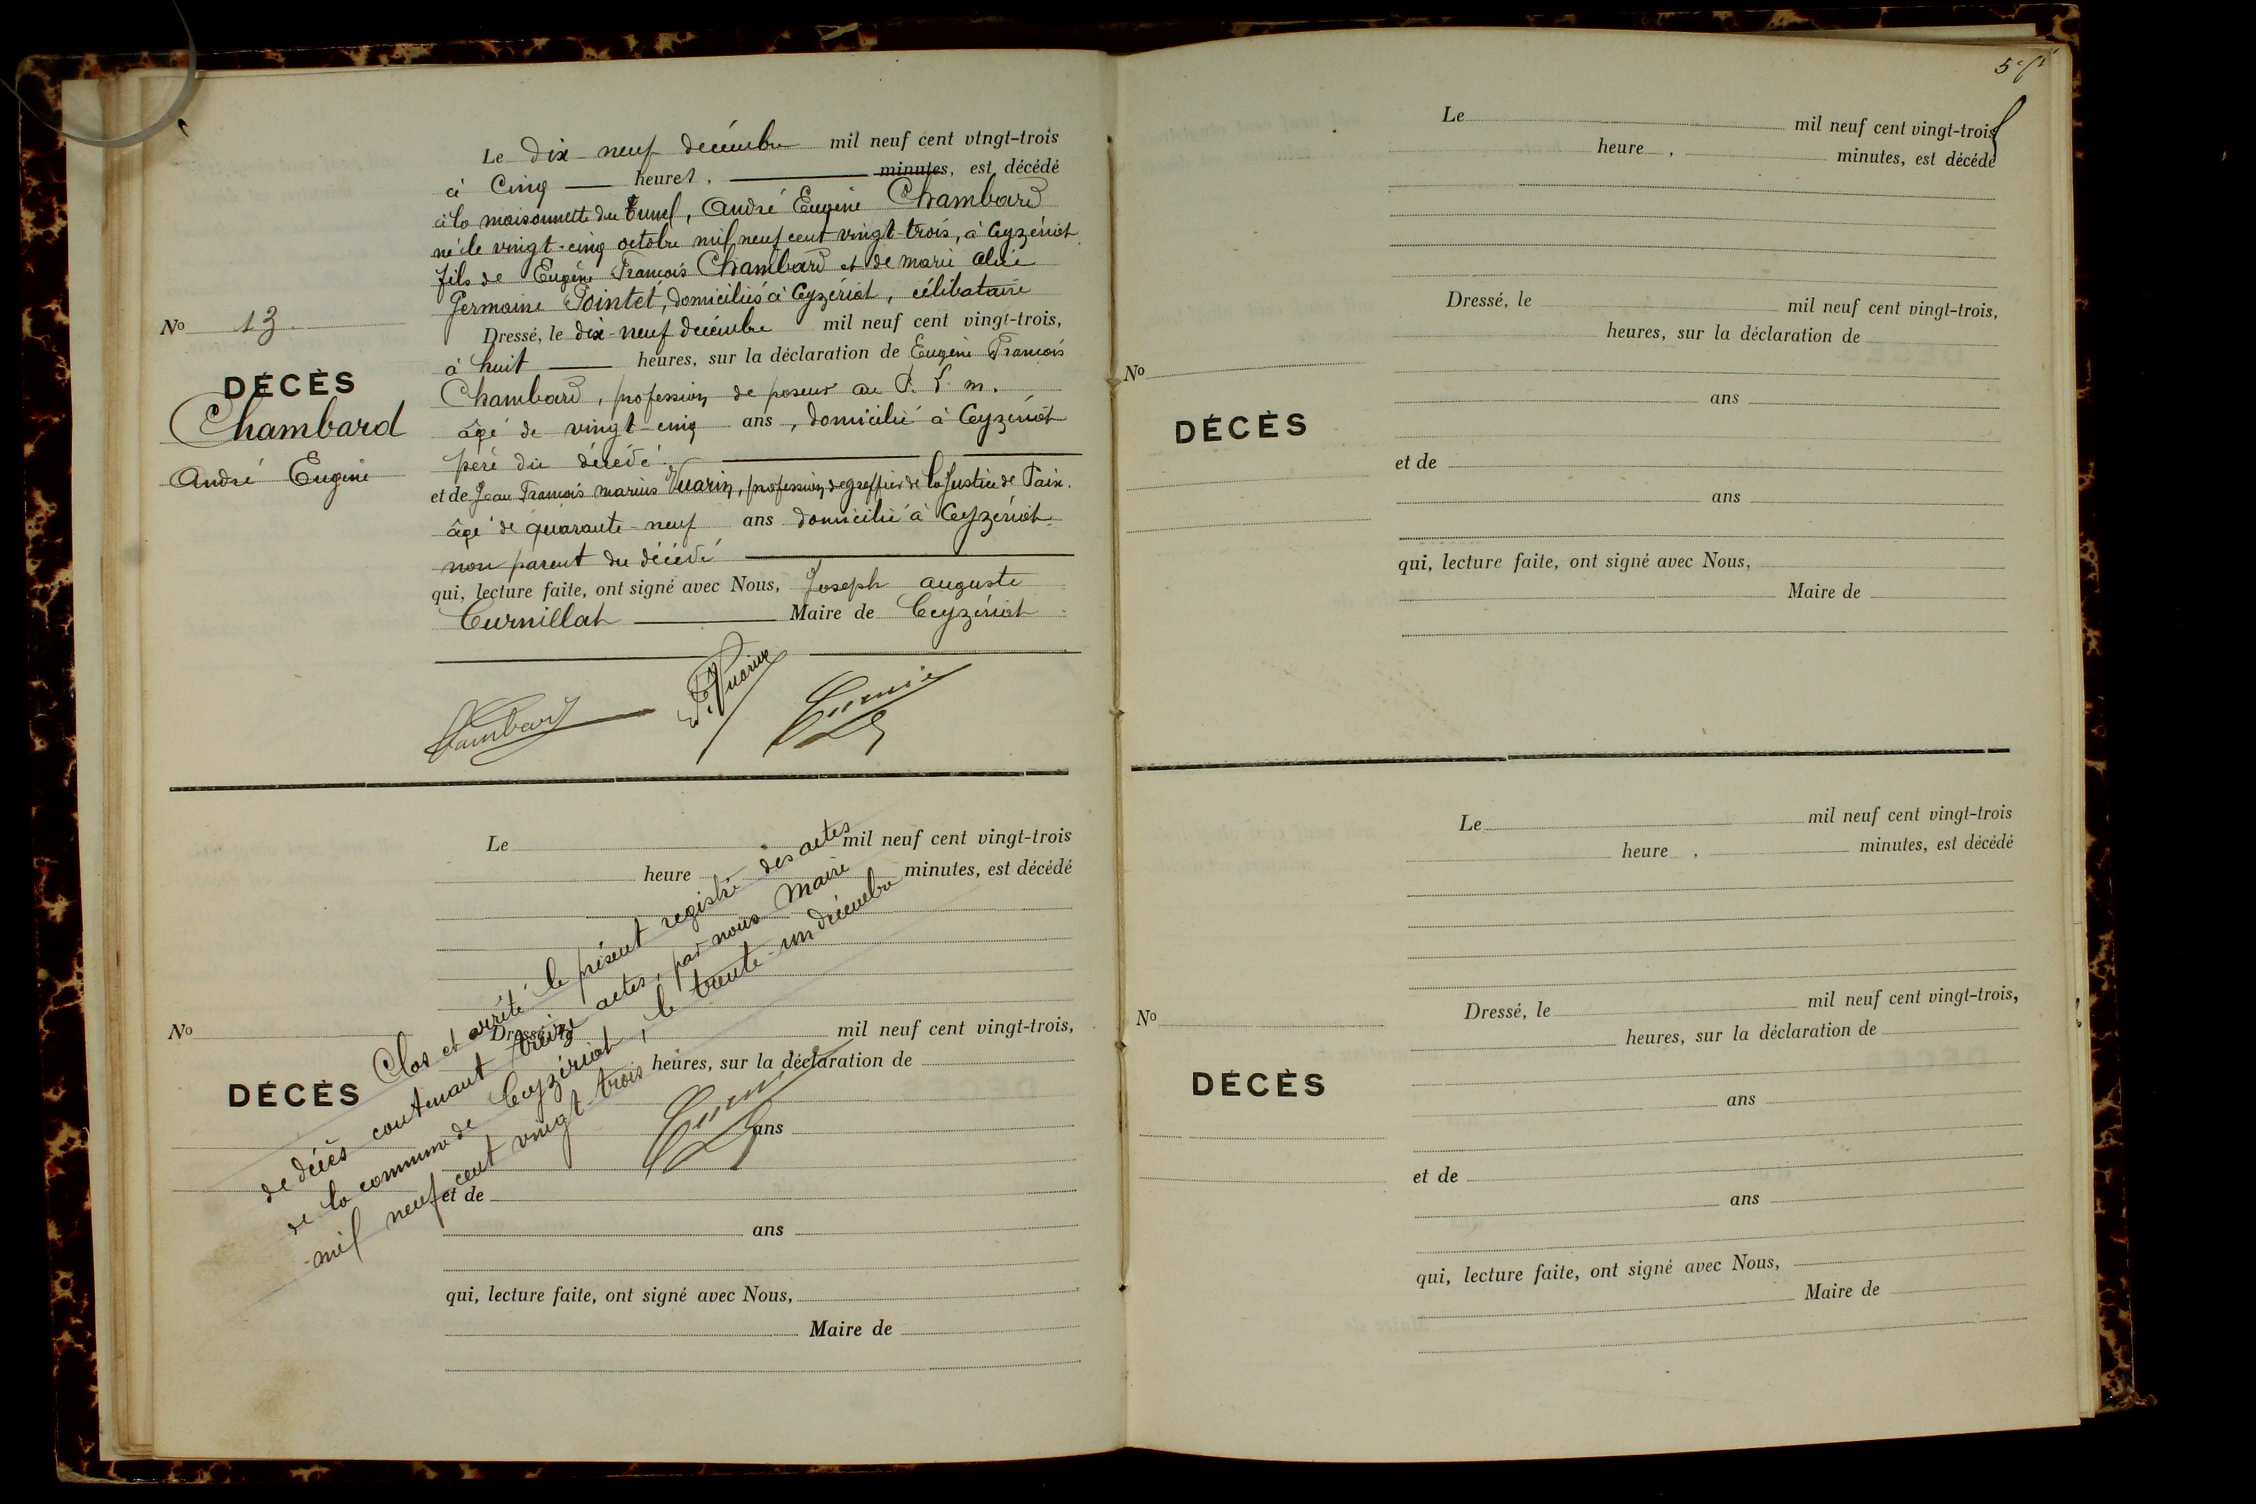 Le dix-neuf décembre mil neuf cent vingt-trois
à Cinq heures, minutes, est décédé
à la maisonnette du Tunel, André Eugène Chambard
né le vingt-cinq octobre mil neuf cent vingt-trois, à Ceyzériat
fils de Eugène François Chambard et de Marie Alice
Germaine Pointet, domiciliés à Ceyzériat, célibataire
No 13.
Dressé, le dix-neuf décembre mil neuf cent vingt-trois,
à huit heures, sur la déclaration de Eugène François
DÉCÈS
Chambard, profession de poseur au P. L. m.
Chambard
âgé de vingt-cinq ans, domicilié à Ceyzériat
père du décédé
André Eugène
et de Jean François Marius Vuarin, profession de greffier de la Justice de Paix.
âgé de quarante-neuf ans domicilié à Ceyzériat
non parent du décédé
qui, lecture faite, ont signé avec Nous, Joseph Auguste
Curnillat Maire de Ceyzériat
Chambard
Vuarin
Le mil neuf cent vingt-trois
heure minutes, est décédé
No
Dressé, le mil neuf cent vingt-trois,
heures, sur la déclaration de
DÉCÈS
ans
et de
ans
qui, lecture faite, ont signé avec Nous,
Maire de
Clos et arrêté le présent registre des actes
de décès contenant treize actes, par nous Maire
de la commune de Ceyzériat, le trente-un décembre
mil neuf cent vingt-trois
Le mil neuf cent vingt-trois
heure, minutes, est décédé
Dressé, le mil neuf cent vingt-trois,
heures, sur la déclaration de
No
ans
DÉCÈS
et de
ans
qui, lecture faite, ont signé avec Nous,
Maire de
Le mil neuf cent vingt-trois
heure, minutes, est décédé
Dressé, le mil neuf cent vingt-trois,
No
heures, sur la déclaration de
DÉCÈS
ans
et de
ans
qui, lecture faite, ont signé avec Nous,
Maire de